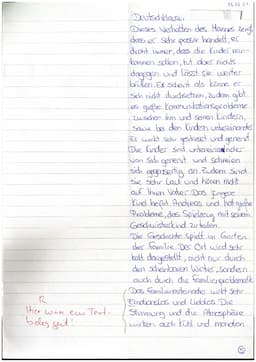 Deutschklausur
Dieses Verhalten des Mannes zeigt,
dass er sehr passiv handelt, er
droht immer, dass die Kinder rein-
kommen sollen, tut aber nichts
dagegen und lässt sie weiter
brüllen. Es scheint als könne er
sich nicht durchsetzen, zudem gibt
es große Kommunikationsprobleme
zwischen ihm und seinen Kindern,
sowie bei den Kindern untereinander.
Er wirkt sehr gestresst und genervt.
Die Kinder sind untereinander
von sich genervt und schreien
sich gegenseitig an. Zudem sind
sie sehr laut und hören nicht
auf ihren Vater. Das jüngere
Kind heißt Andreas und hat große
Probleme, das Spielzeug mit seinem
Geschwisterkind zu teilen.
Die Geschichte spielt im Garten
der Familie. Der Ort wird sehr
kalt dargestellt, nicht nur durch
den Winter, sondern
auch durch die Familienproblematik.
Das wirkt sehr
Emotionslos und lieblos. Die
Stimmung und die Atmosphäre
wirken auch kühl und
Hier wäre ein Text-
beleg gut!